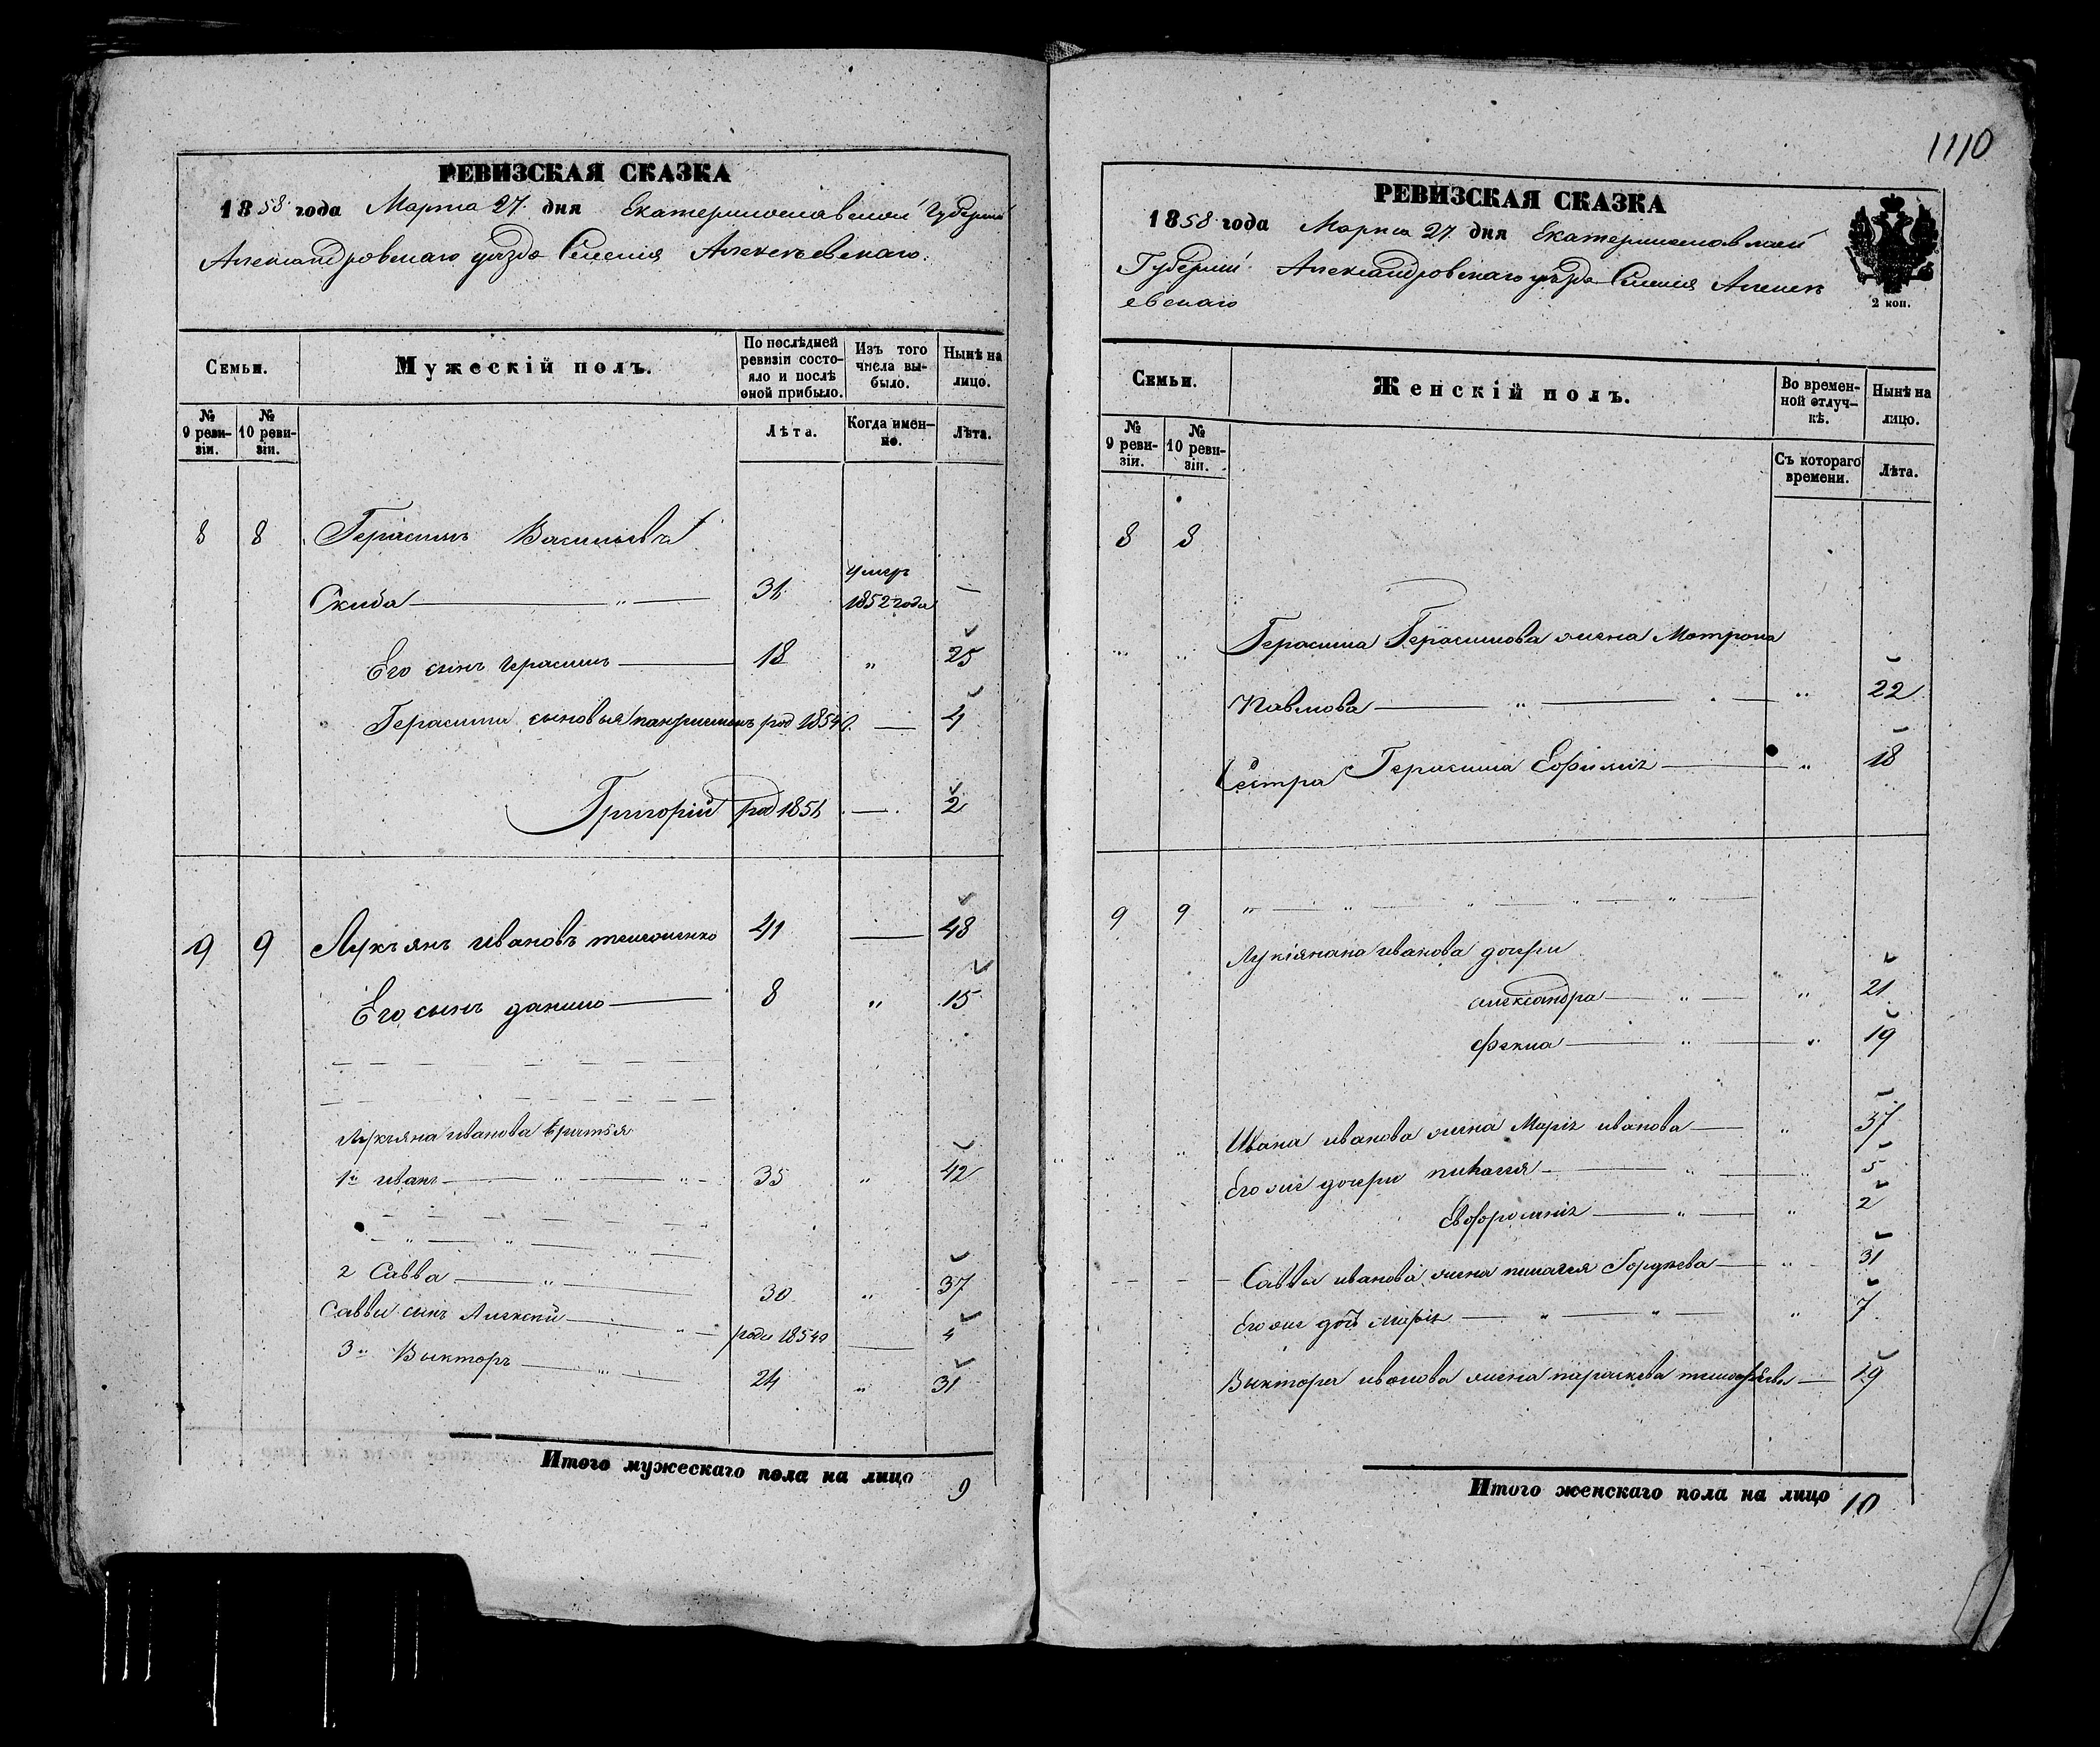 РЕВИЗСКАЯ СКАЗКА
1858 года Марта 27 дня Екатеринославской Губерніи
Александровскаго уѣзда Селенія Алексѣевскаго.
Семьи.
Мужескій полъ.
По послѣдней ревизіи состояло и послѣ оной прибыло.
Изъ того числа выбыло.
Нынѣ на лицо.
№ 9 ревизіи.
№ 10 ревизіи.
Лѣта.
Когда именно.
Лѣта.
8 8 Герасимъ Васильевъ
Скиба 31 умеръ 1852 года —
Его сынъ Герасимъ 18 " 25
Герасима сыновья род 1854 — 4
Григорій род 1856 — 2
9 9 Лукъянъ Ивановъ 41 — 48
Его сынъ Данило 8 " 15
Лукъяна Иванова братья
1й Иванъ 35 " 42
2 Савва 30 " 37
Саввы сынъ Алексѣй роди 1854 — 4
3й Выкторъ 24 " 31
Итого мужескаго пола на лицо 9
1110
РЕВИЗСКАЯ СКАЗКА
1858 года Марта 27 дня Екатеринославской
Губерніи Александровскаго уѣзда Селенія Алексѣ
евскаго
2 коп.
Семьи.
Женскій полъ.
Во временной отлучкѣ.
Нынѣ на лицо.
№ 9 ревизіи.
№ 10 ревизіи.
Съ котораго времени.
Лѣта.
8 8
Герасима Герасимова жена Мотрона
Павлова " 22
Сестра Герасима Ефимія " 18
9 9
Лукіянана Иванова дочери
Александра " 21
Фекла " 19
Ивана Иванова жена Марія Иванова " 37
Его же дочери Пилагія 5
Евфросинія " 2
Саввы Иванова жена Пилагія Гордѣева " 31
Его же дочь Марія " 7
Выктора Иванова жена Параскева Тимофѣева — 19
Итого женскаго пола на лицо 10